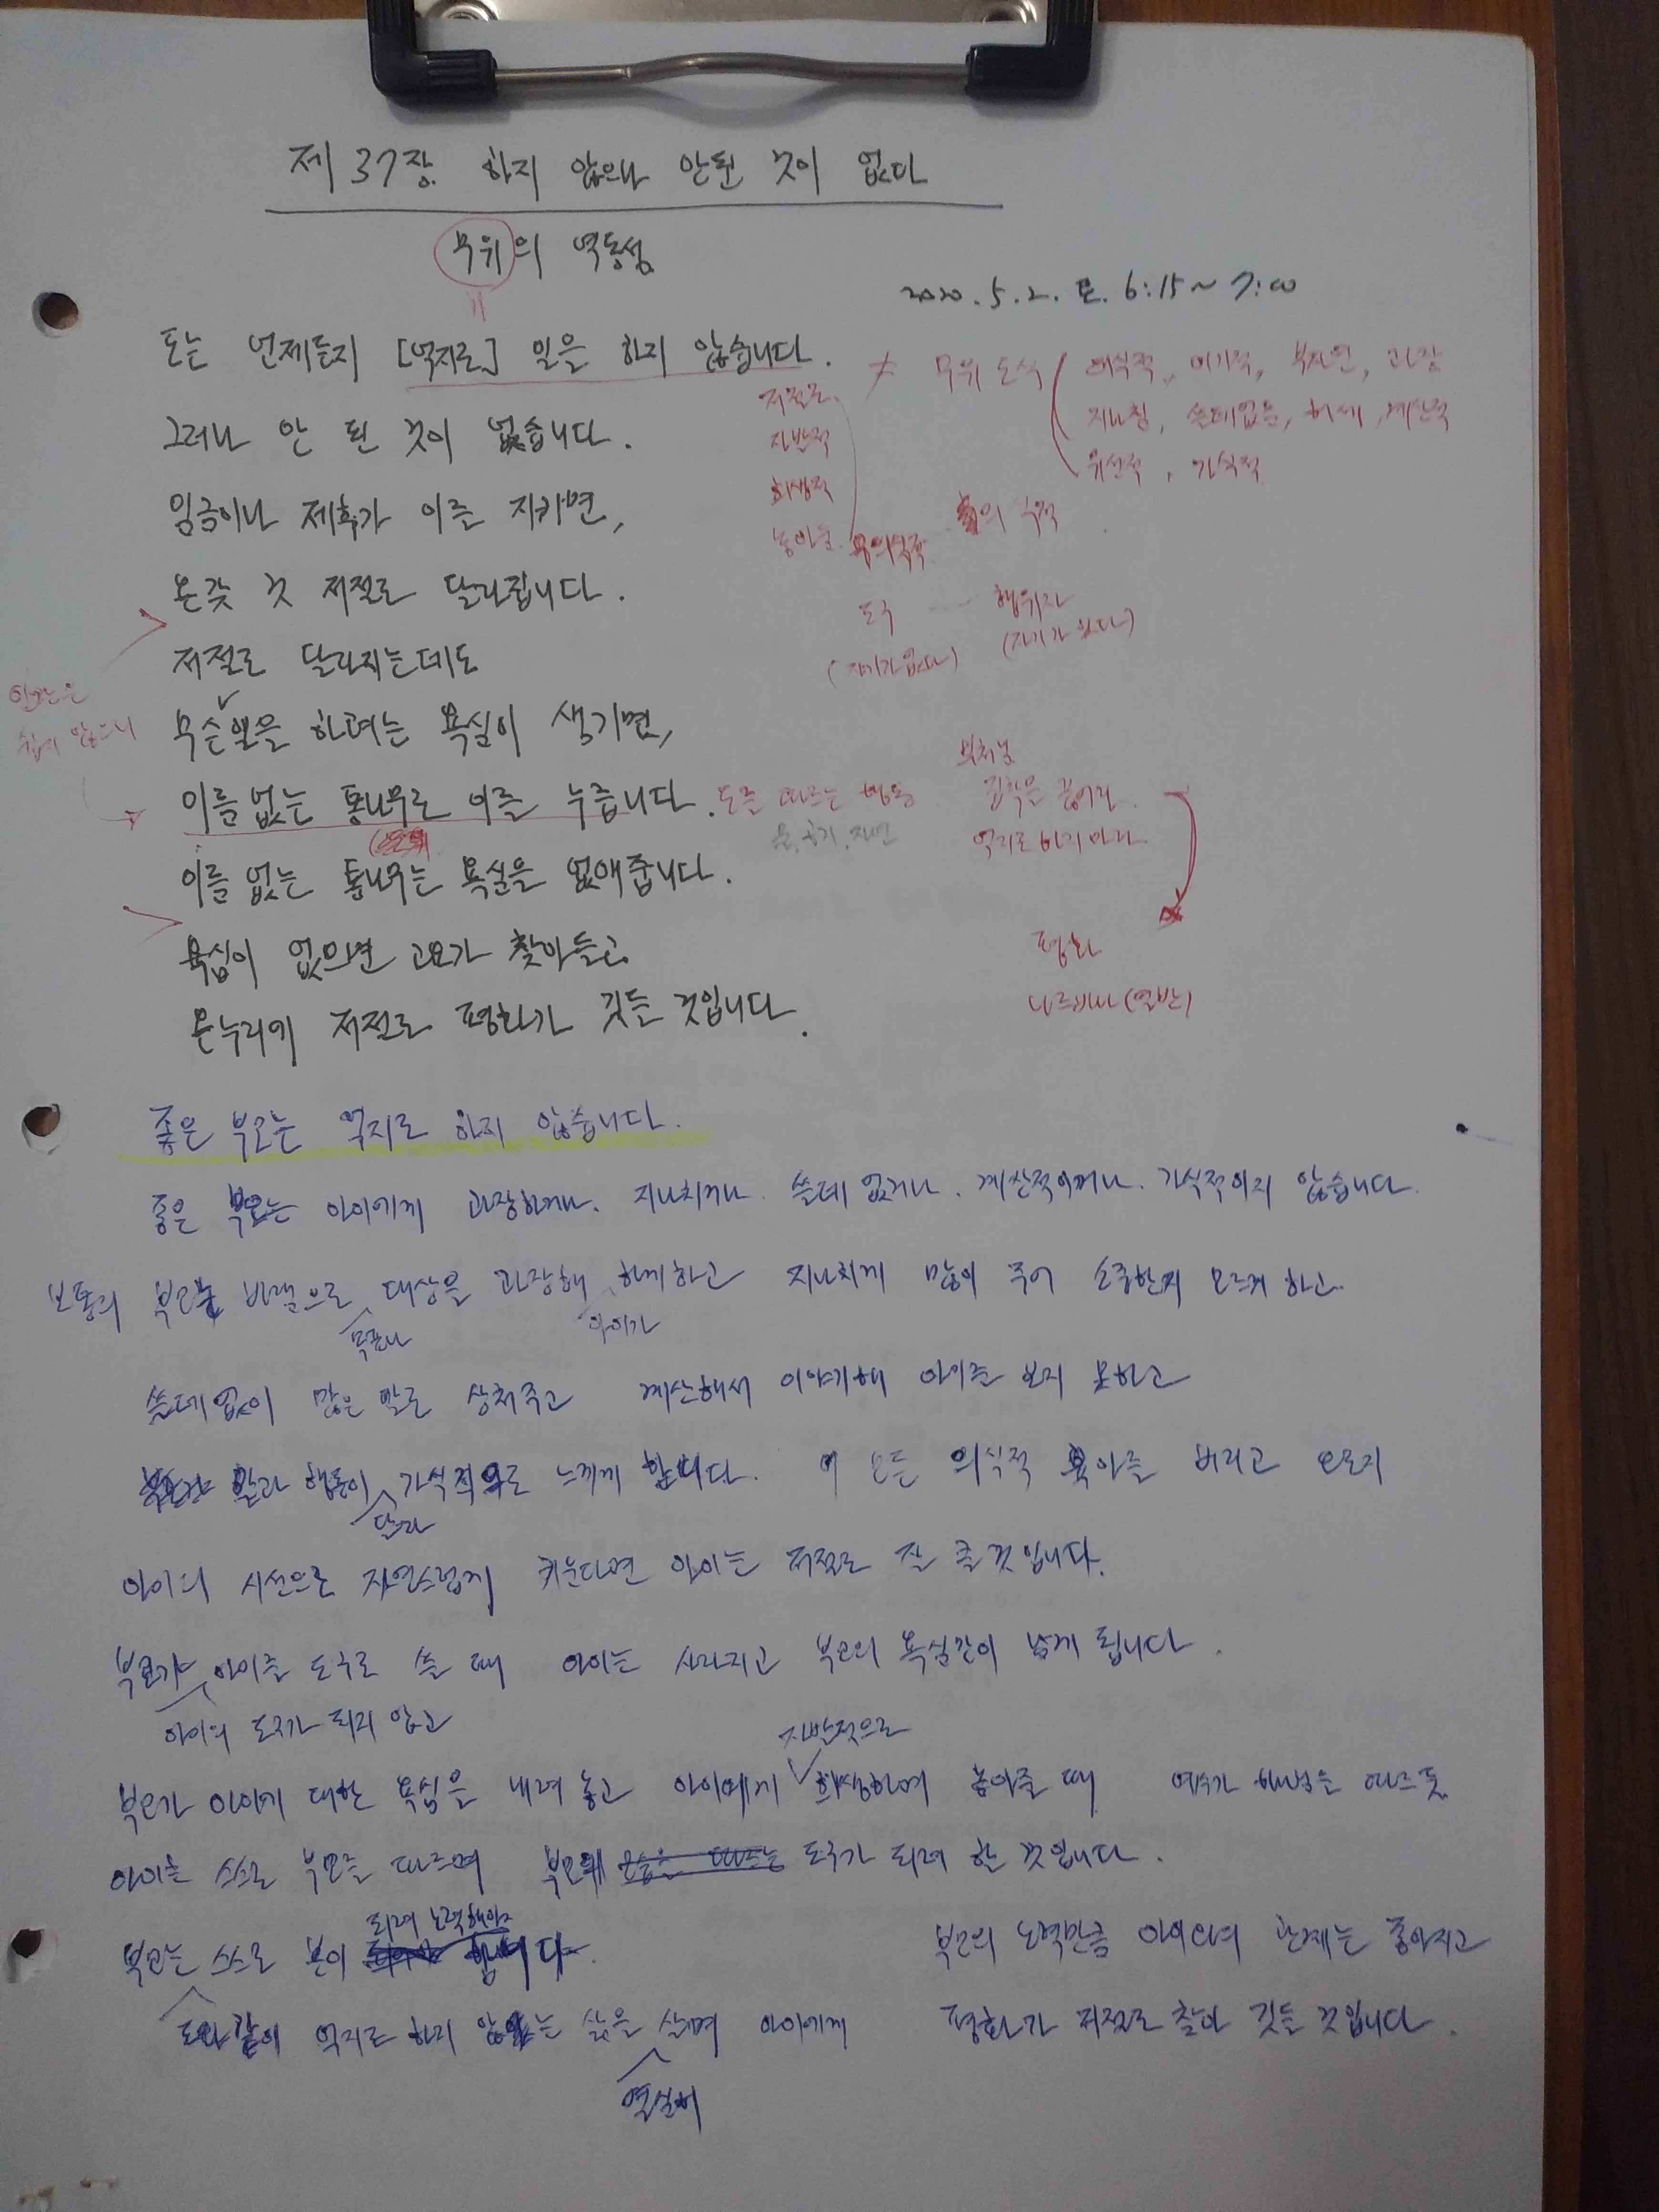 제 37장. 하지 않으나 안된 것이 없다
무위의 역동성
2020. 5. 2. 토. 6:15 ~ 7:00
도는 언제든지 [억지로] 일을 하지 않습니다.
≠ 무위 도식 의식적, 이기적, 부자연, 과장
지나침, 쓸데없음, 허세, 계산적
위선적, 가식적
저절로
자발적
희생적
놓아줌 무의식적 의식적
그러나 안 된 것이 없습니다.
임금이나 제후가 이를 지키면,
온갖 것 저절로 달라집니다.
도구 행위자
(자기가 없다) (자기가 있다)
저절로 달라지는데도
인간은
쉽지 않으니
무슨 일을 하려는 욕심이 생기면,
이름 없는 통나무로 이를 누릅니다. 도를 따르는 행동
물, 공기, 자연
부처님
집착을 끊어라.
억지로 하지 마라
이름 없는 통나무는 욕심을 없애줍니다.
욕심이 없으면 고요가 찾아들고
평화
온누리에 저절로 평화가 깃들 것입니다.
니르바나 (열반)
좋은 부모는 억지로 하지 않습니다.
좋은 부모는 아이에게 과장하거나. 지나치거나. 쓸데 없거나. 계산적이거나. 가식적이지 않습니다.
보통의 부모는 바램으로 대상을 과장해 하게하고 지나치게 많이 주어 소중한지 모르게 하고.
목표나 아이가
쓸데없이 많은 말로 상처주고 계산해서 이야기해 아이를 보지 못하고
말과 행동이 가식적으로 느끼게 합니다. 이 모든 의식적 육아를 버리고 오로지
달라
아이의 시선으로 자연스럽게 키운다면 아이는 저절로 잘 클 것입니다.
부모가 아이를 도구로 쓸 때 아이는 사라지고 부모의 욕심만이 남게 됩니다.
아이의 도구가 되지 않고
자발적으로
부모가 아이에 대한 욕심을 내려 놓고 아이에게 희생하며 놓아줄 때 예수가 하느님을 따르듯
아이는 스스로 부모를 따르며 부모의 모습을 따르는 도구가 되려 할 것입니다.
되려 노력해야
부모는 스스로 본이 합니다.
도와 같이 억지로 하지 않는 삶을 살며 아이에게
열심히
부모의 노력만큼 아이와의 관계는 좋아지고
평화가 저절로 찾아 깃들 것입니다.